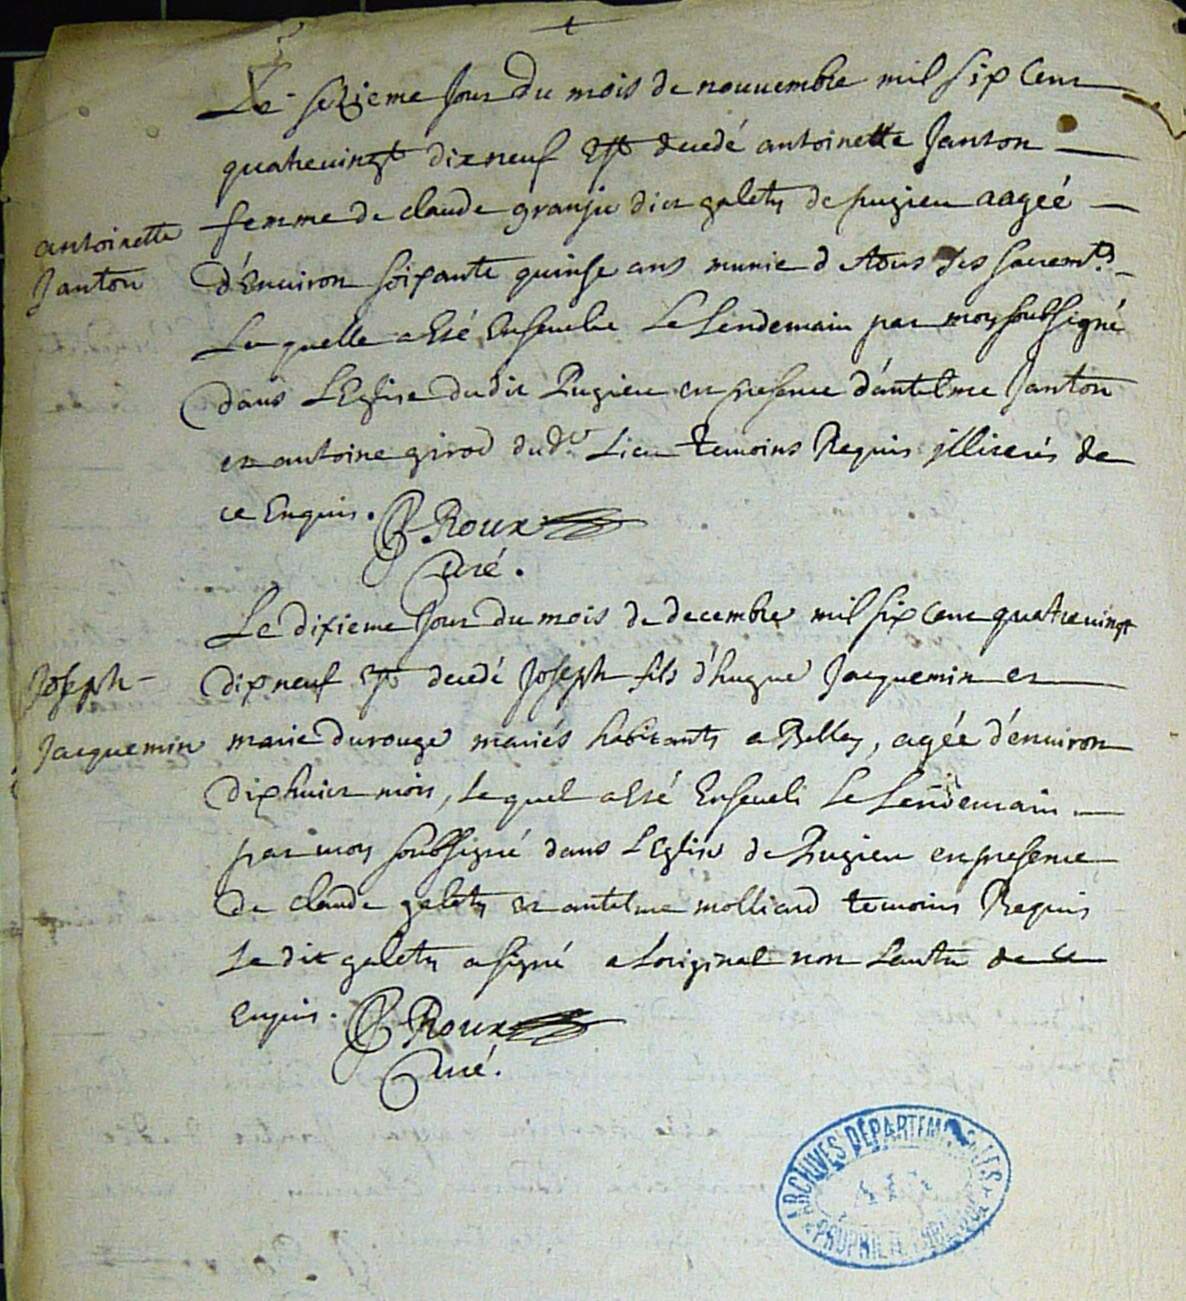 Le sezieme Jour du mois de nouuembre mil six Cent
quatreuingt dixneuf est decedé antoinette Janton
antoinette
Janton
femme de claude granju dict galety de pugieu aagéé
d'Enuiron soixante quinse ans munie d tous des sacremts
Laquelle a Esté Enseuelie Le Lendemain par moy soubsigné
dans L'Eglise dudit Pugieu en presence d'antelme Janton
et antoine girod dudt Lieu temoins Requis illiterés de
ce Enquis. Roux
Curé.
Le dixieme Jour du mois de decembre mil six cent quatreuingt
Joseph
Jacquemin
dixneuf est decedé Joseph fils d'hugue Jacquemin et
marie durouge mariés habitants a Belley, agée d'enuiron
dixhuict mois, Lequel a Esté Enseueli Le Lendemain
par moy soubsigné dans L'Eglise de Pugieu en presence
de claude galety et antelme molliard temoins Requis
Le dit galety a signé a Loriginal non Lautre de ce
enquis. Roux
Curé.
ARCHIVES DÉPARTEMENTALES
AIN
PROPRIÉTÉ PUBLIQUE